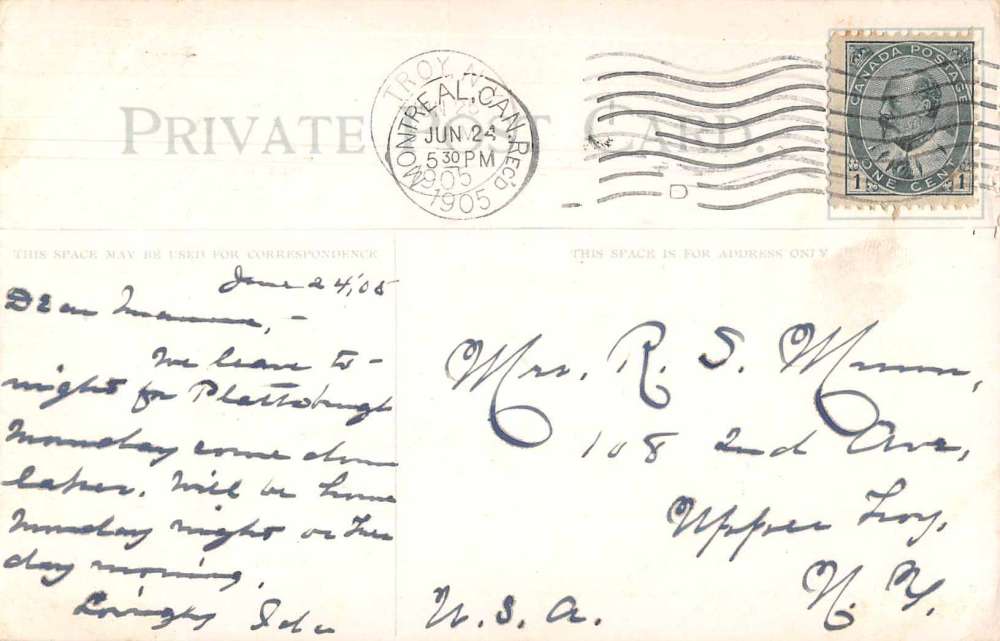 PRIVATE POST CARD.
TROY, N
MONTREAL, CAN. REC'D
JUN 24
5 30 PM
1905
1905
D
CANADA POSTAGE
1 ONE CENT 1
THIS SPACE MAY BE USED FOR CORRESPONDENCE
THIS SPACE IS FOR ADDRESS ONLY
June 24, '05
Dear Mamma, -
We leave to-
night for Plattsburgh
Monday come down
lakes. Will be home
Monday night or Tues
day morning.
Lovingly Ida
Mrs. R. S. Munn,
108 2nd Ave,
Upper Troy,
N. Y.
U. S. A.